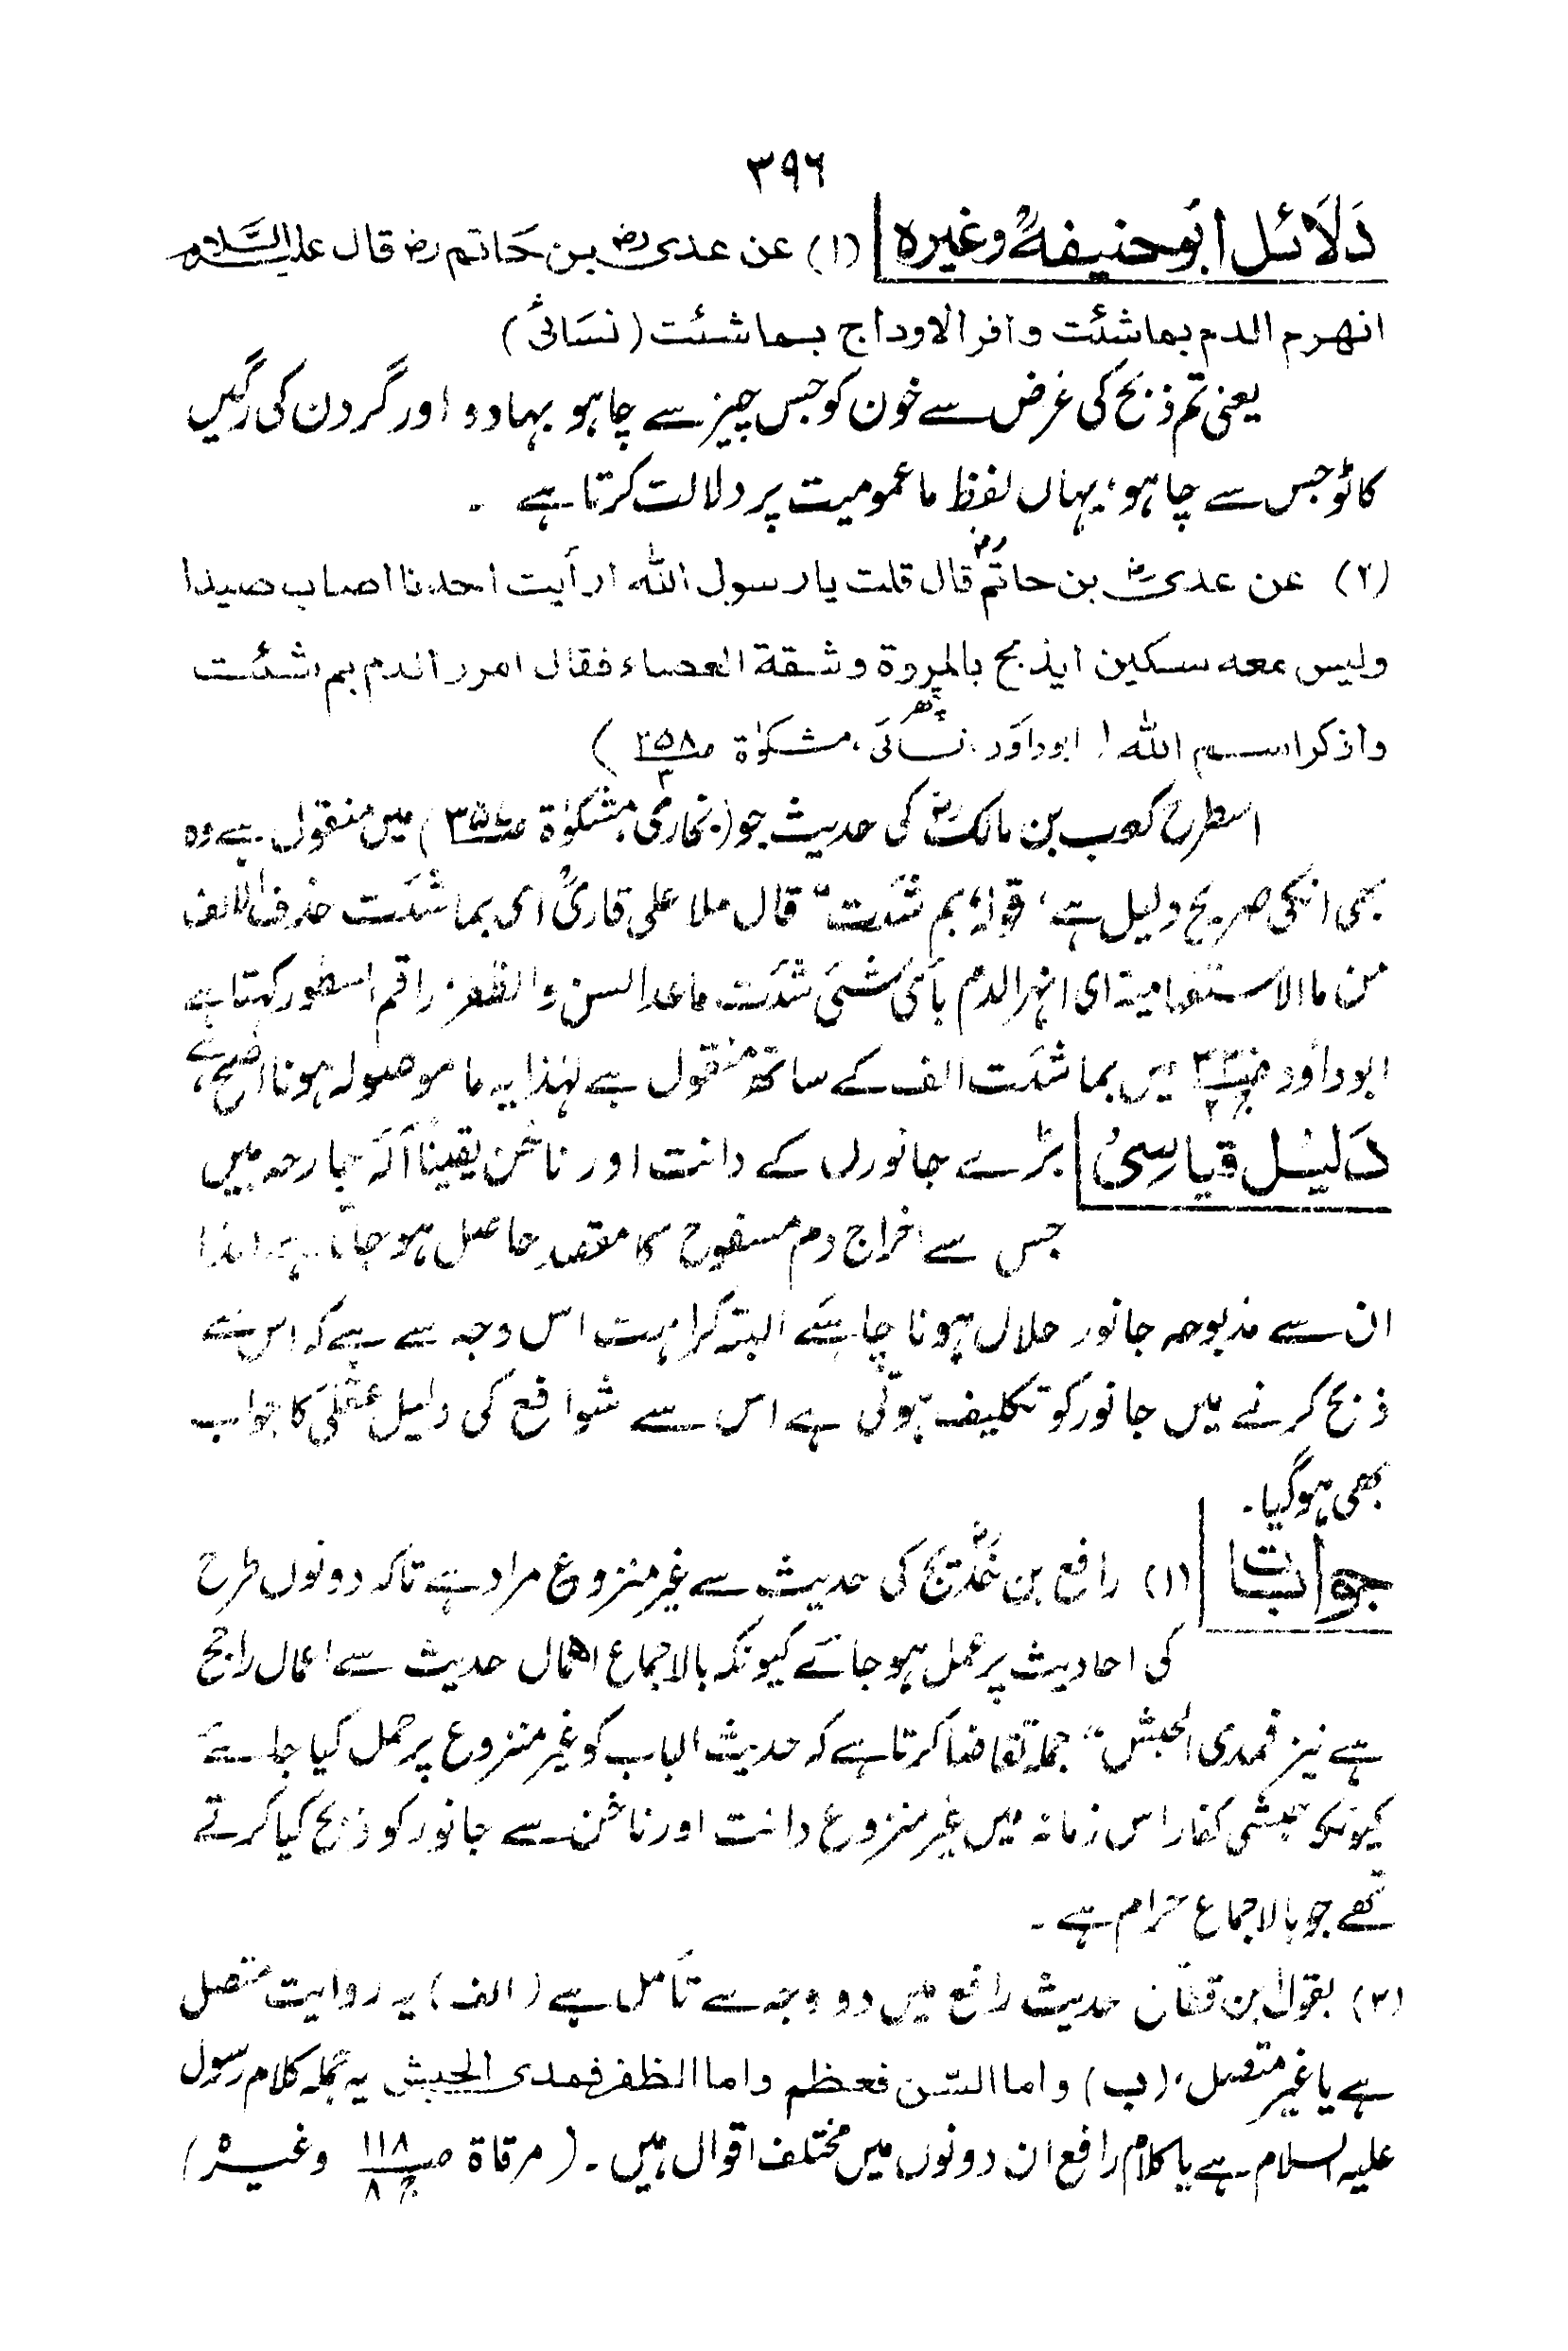 ۳۹۶
دَلَائل ابو حنیفہؒ وغیرہ (۱) عن عدی رض بن حَاتم رض قال علیہ السَّلام
انہر م الدم بماشئت وافر الاوداج بماشئت (نسَائیؒ)
یعنی تم ذبح کی غرض سے خون کو جس چیز سے چاہو بہادو اور گردن کی رگیں
کاٹو جس سے چاہو، یہاں لفظ ما عمومیت پر دلالت کرتا ہے ۔
(۲) عن عدی رض بن حاتم رض قال قلت یا رسول اللہ ارأیت احدنا اصاب صیدا
ولیس معہ سکین ایذبح بالمروۃ وشقۃ العصاء فقال امرر الدم بم شئت
واذکر اسم اللہ! ابوداؤد، نسائی، مشکوٰۃ ص۳۵۸)
اسطرح کعب بن مالک رض کی حدیث جو (بخاری، مشکوٰۃ ص۳۵۷) میں منقول ہے وہ
بھی انکی صریح دلیل ہے، قولہ بم شئت" قال ملا علی قاریؒ ای بما شئت حذف الالف
من ما الاستفہامیۃ ای انہر الدم بأی شئی شئت ماعدا السن والظفر، راقم السطور کہتا ہے
ابوداؤد میں بما شئت الف کے ساتھ منقول ہے لہٰذا یہ ما موصولہ ہونا اصح ہے،
دَلیل قیاسی بڑے جانوروں کے دانت اور ناخن یقیناً آلۂ جارحہ ہیں
جس سے اخراج دم مسفوح کا مقصد حاصل ہو جاتا ہے لہذا
ان سے مذبوحہ جانور حلال ہونا چاہئے البتہ کراہت اس وجہ سے ہے کہ اس سے
ذبح کرنے میں جانور کو تکلیف ہوتی ہے اس سے شوافع کی دلیل عقلی کا جواب
بھی ہوگیا۔
جوابات (۱) رافع بن خدیج رض کی حدیث سے غیر منزوع مراد ہے تاکہ دونوں طرح
کی احادیث پر عمل ہو جائے کیونکہ بالاجماع اھمال حدیث سے اعمال راجح
ہے نیز فمدی الحبش" جملہ تقاضا کرتا ہے کہ حدیث الباب کو غیر منزوع پر حمل کیا جائے
کیونکہ حبشی کفار اس زمانہ میں غیر منزوع دانت اور ناخن سے جانور کو ذبح کیا کرتے
تھے جو بالاجماع حرام ہے ۔
(۲) بقول ابن قطان حدیث رافع میں دو وجہ سے تأمل ہے (الف) یہ روایت متصل
ہے یا غیر متصل، (ب) واما السّن فعظم واما الظفر فمدی الحبش یہ جملہ کلام رسول
علیہ السلام ہے یا کلام رافع ان دونوں میں مختلف اقوال ہیں ۔ (مرقاۃ ص۱۱۸ ج۸ وغیرہ)